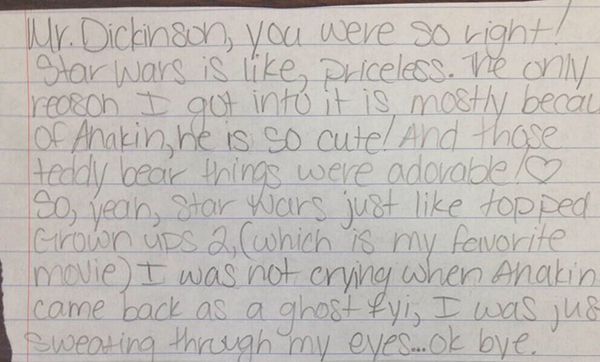 Mr. Dickinson, you were so right!
Star Wars is like, priceless. The only
reason I got into it is mostly becau
of Anakin, he is so cute! And those
teddy bear things were adorable!♡
So, yeah, Star Wars just like topped
Grown ups 2, (which is my favorite
movie) I was not crying when Anakin
came back as a ghost fyi, I was jus
sweating through my eyes...ok bye.